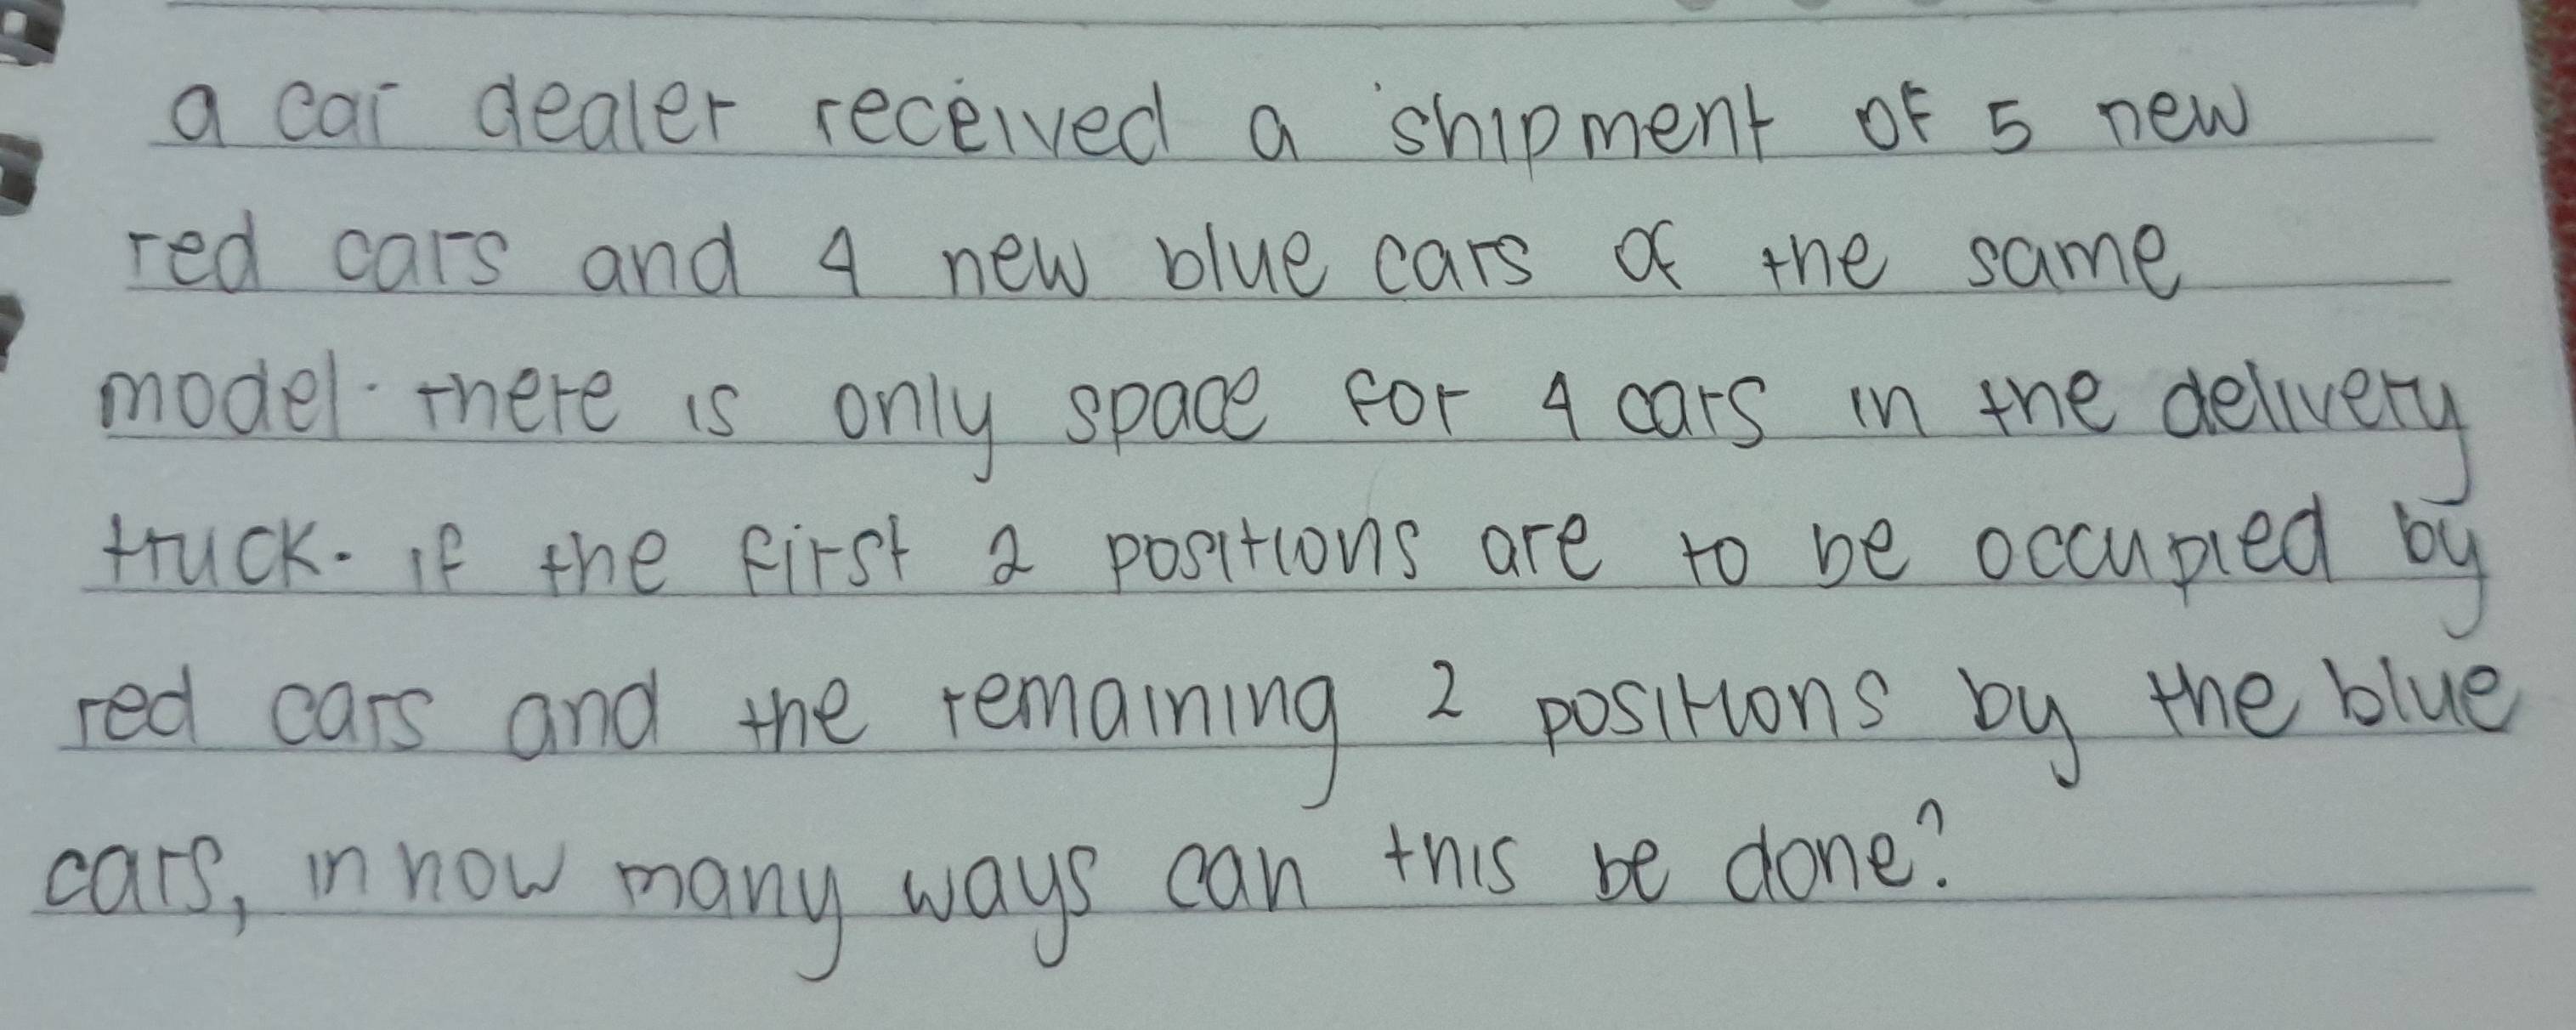 a car dealer received a shipment of 5 new
red cars and 4 new blue cars of the same
model. there is only space for 4 cars in the delivery
truck. if the first 2 positions are to be occupied by
red cars and the remaining 2 positions by the blue
cars, in how many ways can this be done?